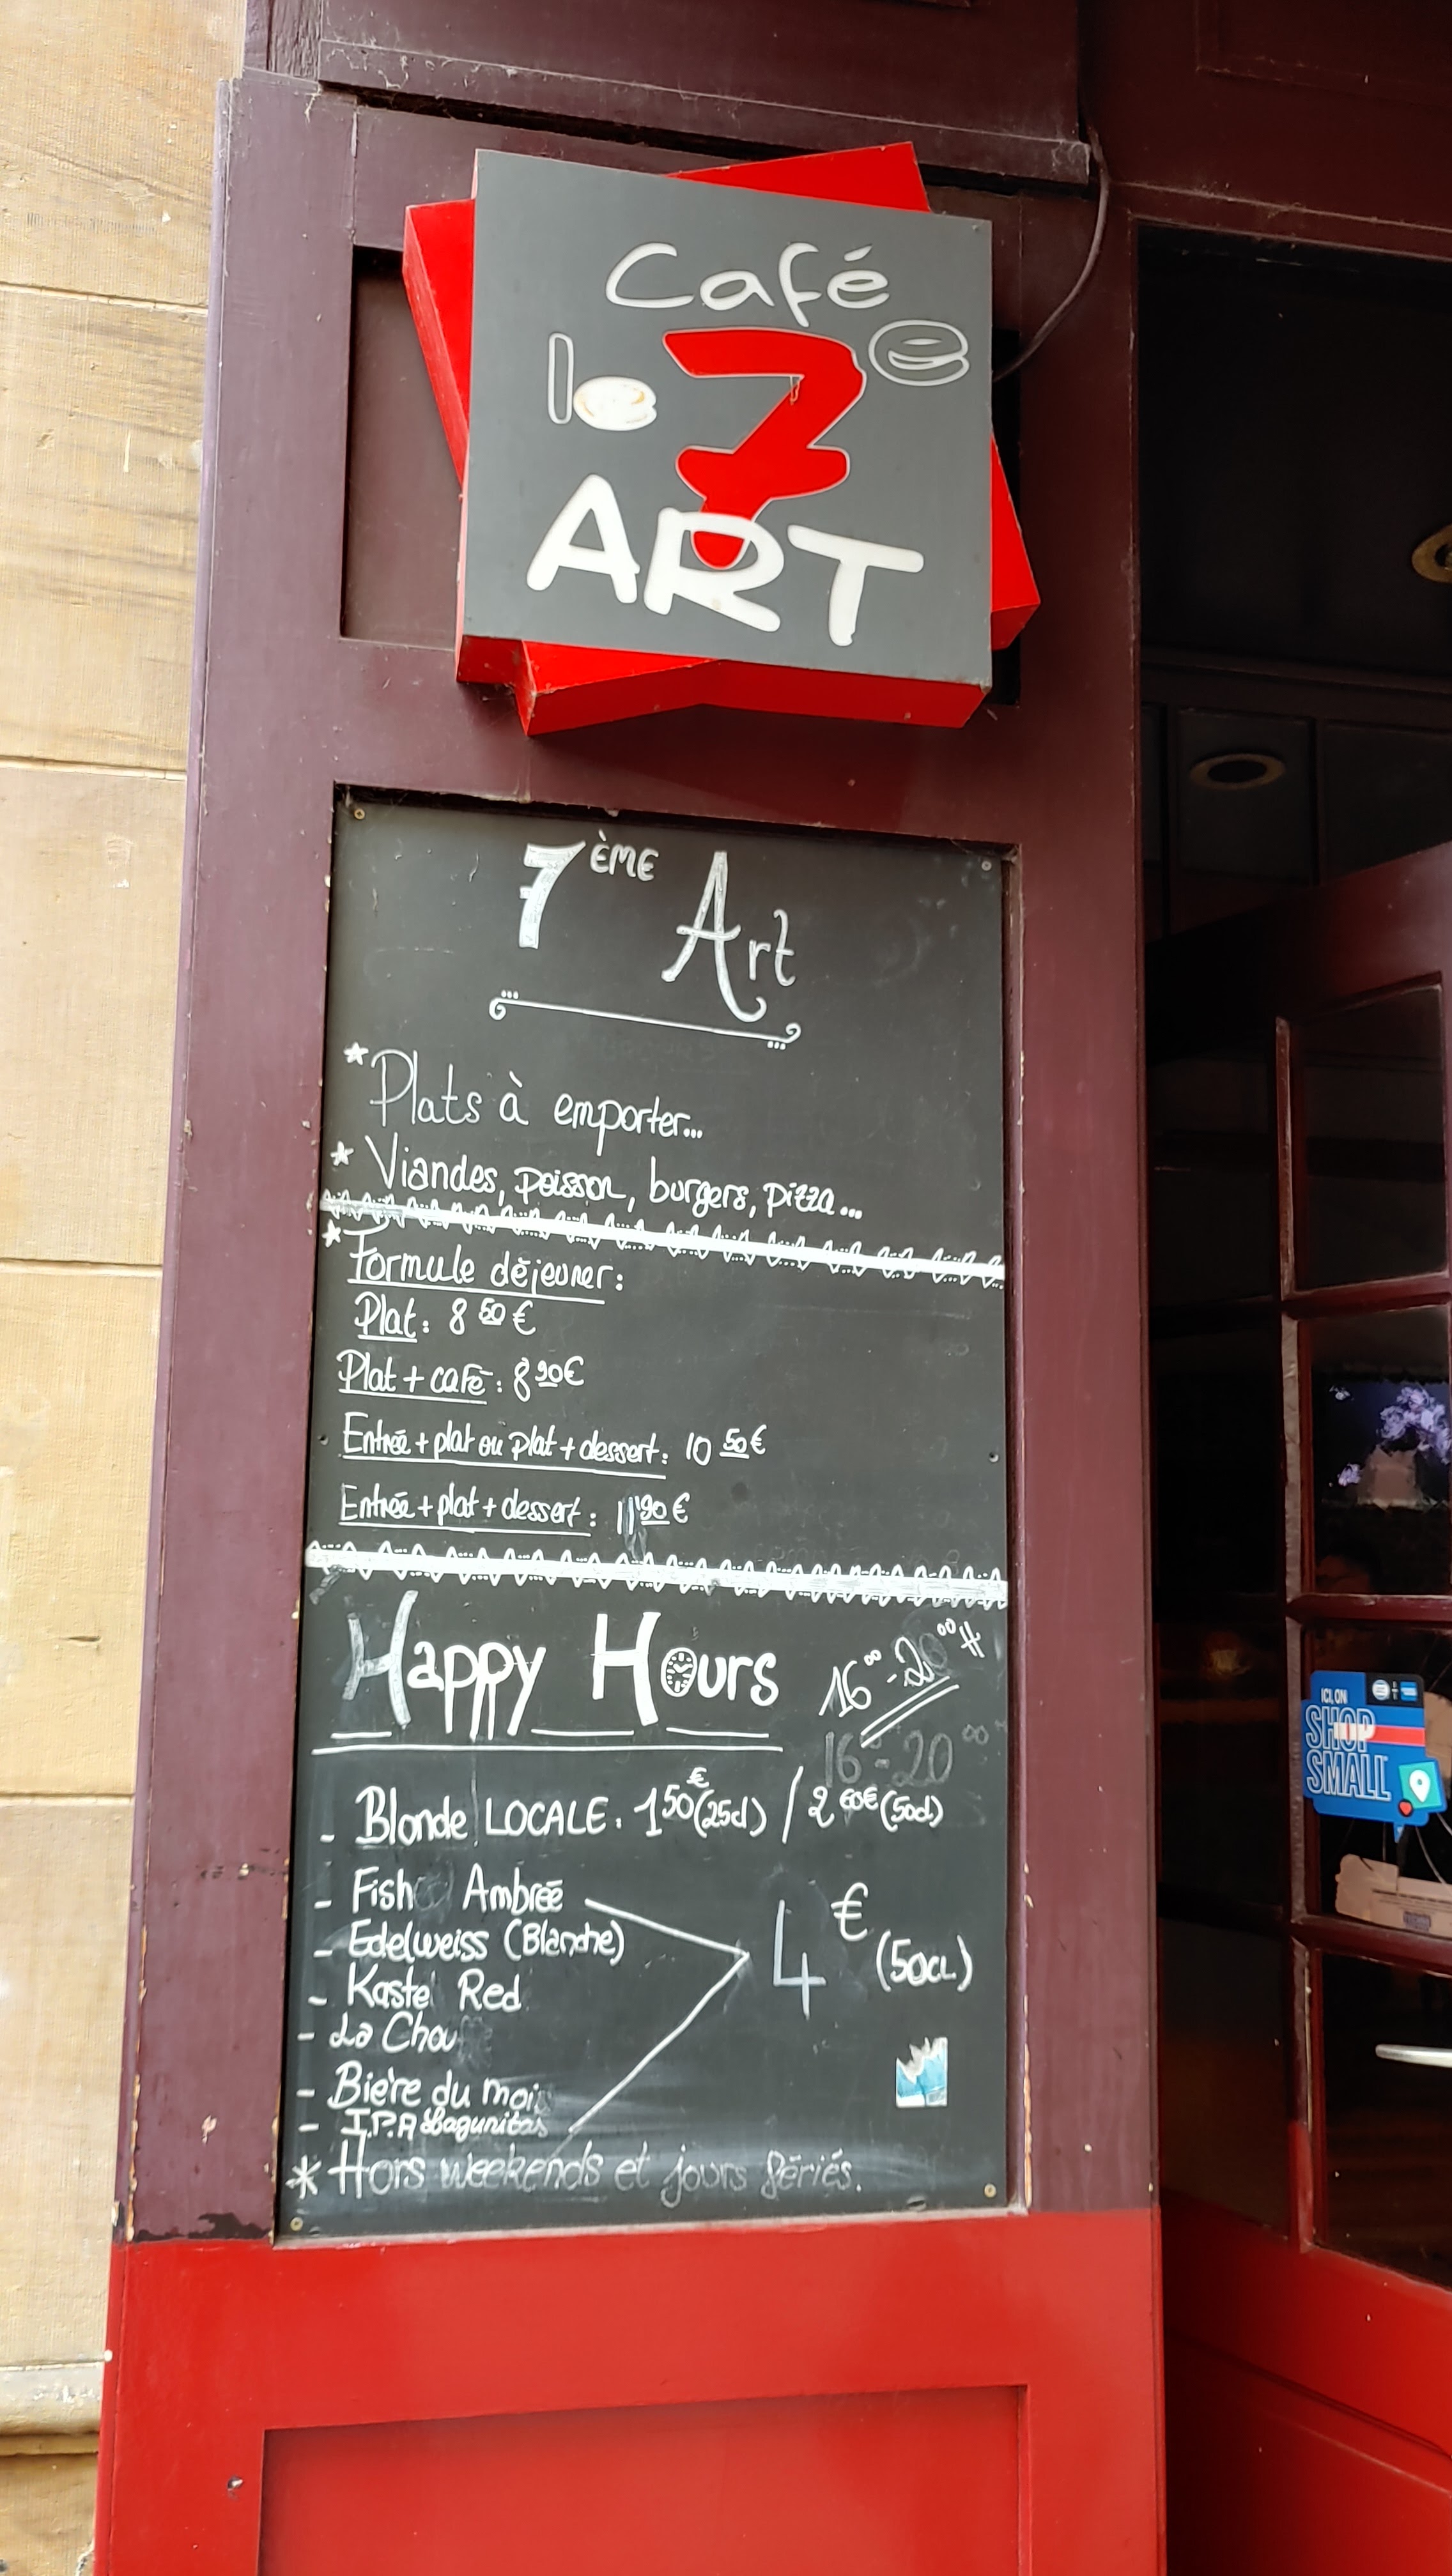 Café
le 7e
ART
7ÈME Art
*Plats à emporter...
* Viandes, poisson, burgers, pizza...
* Formule déjeuner:
Plat: 8 50 €
Plat + café: 8 90€
Entrée + plat ou plat + dessert: 10 50 €
Entrée + plat + dessert: 11 90 €
Happy Hours 16 00 - 20 00 H
16 00 - 20 00
- Blonde LOCALE: 1 50 € (25cl) / 2 60€ (50cl)
- Fish Ambrée
- Edelweiss (Blanche)
- Kastel Red
- La Chou
4 € (50CL)
- Bière du mois
- I.P.A Lagunitas
* Hors weekends et jours fériés.
ICI, ON
SHOP
SMALL